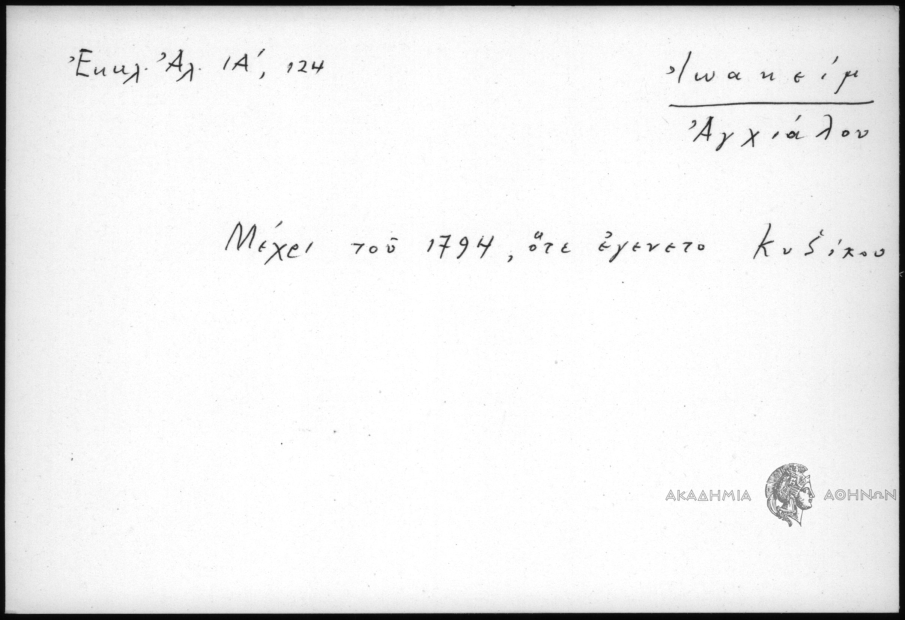 Ἐκκλ. Ἀλ. ΙΑ', 124
Ἰωακείμ
Ἀγχιάλου
Μέχρι τοῦ 1794, ὅτε ἐγενετο Κυζίκου
ΑΚΑΔΗΜΙΑ ΑΘΗΝΩΝ